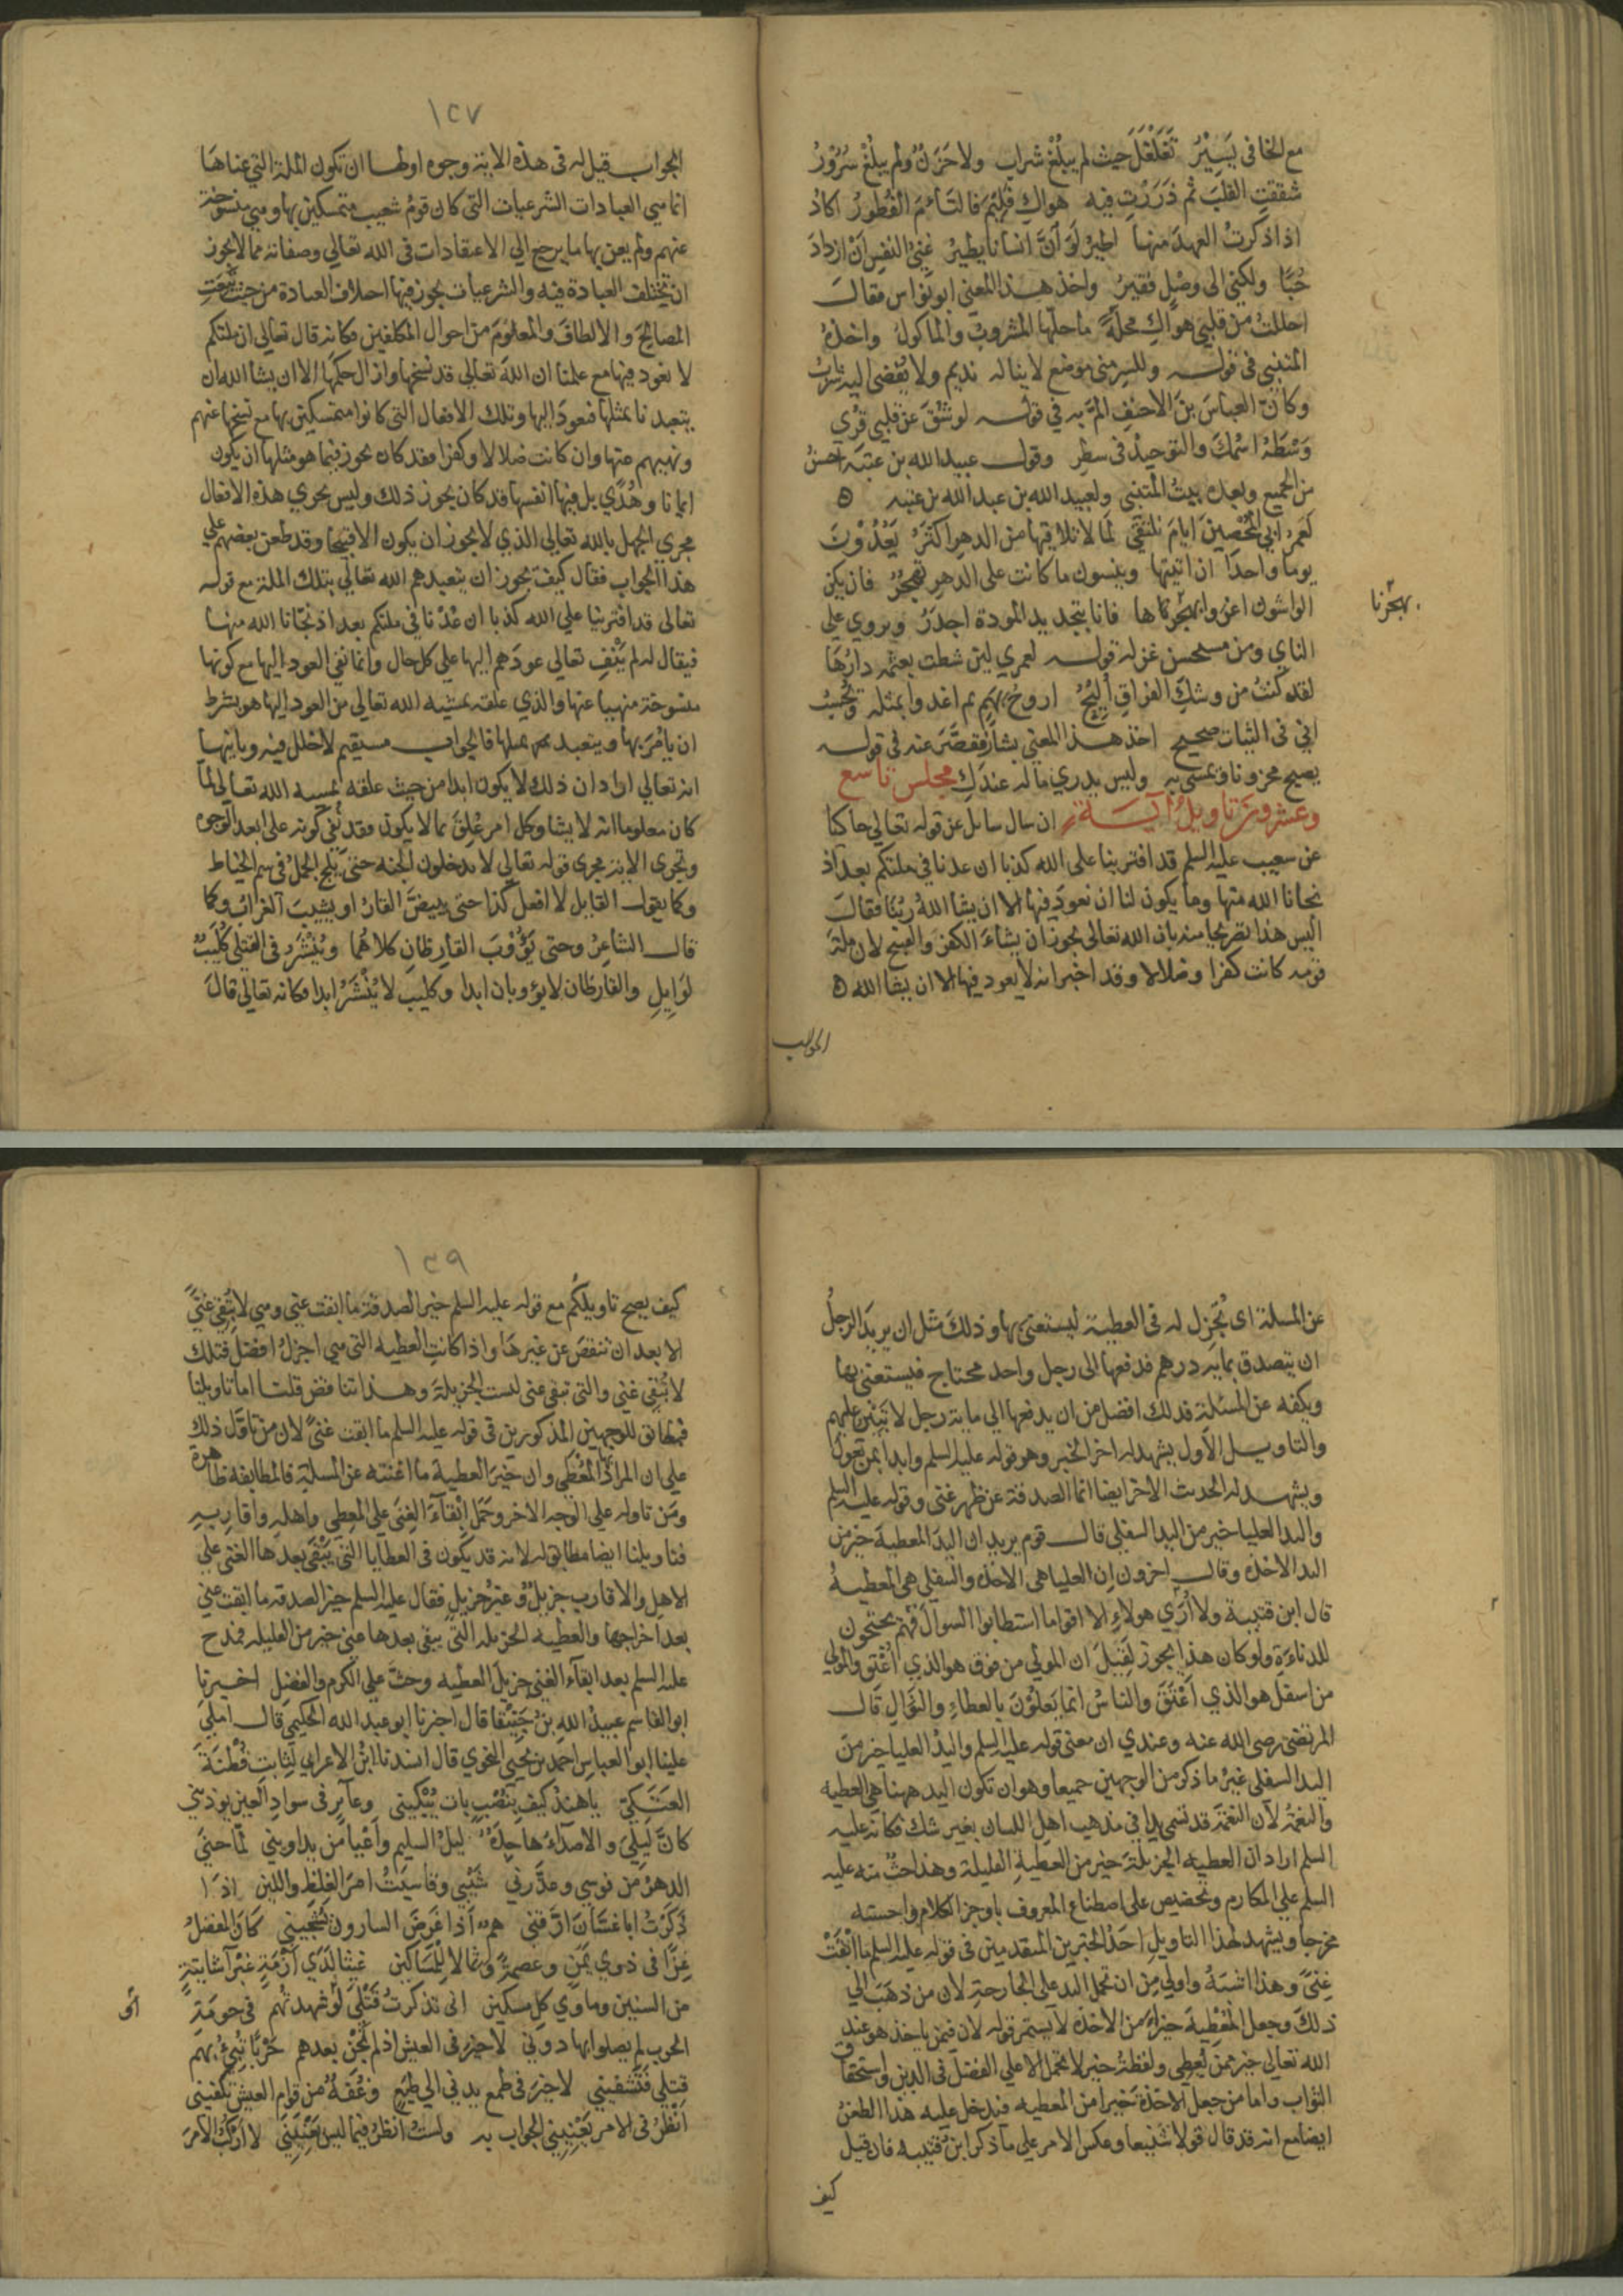 مع الخافى يسيرُ تَغَلْغَلَ حيث لم يبلُغْ شراب ولا حَزَنٌ ولم يبلُغْ سُرُوْرُ
شققتِ القلبَ ثم ذَرَرْتِ فيه هواكِ فَلِيْمَ فالتَأمَ الفُطُورُ اكادُ
اذا ذكرتُ العهدَ منها اطيرُ لَوَ اَنَّ انسانا يطيرُ غنِيُّ النفسِ اَنْ ازدادَ
حُبًّا ولكنى الى وصْلٍ فقيرُ واخذ هذا المعنى ابو نواس فقال
احللتُ من قلبى هواكِ محلّةً ما حلّها المشروبُ والماكولُ واخذهُ
المتنبى فى قوله وللسر منى موضع لا يناله نديم ولا يُفضى اليه شراب
وكانّ العباسَ بنَ الاحنفِ المَّ به فى قوله لو شُقَّ عن قلبى قُرِي
وَسْطَهُ اسْمُكَ والتوحيدُ فى سطرِ وقول عبيد الله بن عتبة احسنُ
من الجميع وبعده بيتُ المتنبى ولعبيد الله بن عبد الله بن عتبه ه
لعمرُ ابي المُحْصِينَ ايامَ نلتقى لَما لا نلاقيها من الدهرِ اكثَرُ يَعُدُّوْنَ
يوما واحدًا ان اتيتها وينسون ما كانت على الدهرِ تهجُرُ فان يكن
الواشون اغروا بهَجرُناها فانا بتجديد المودة اجدَرُ ويروي على
بهجرنا
الناي ومن مستحسن غزله قوله لعمري لين شطت بعثمه دارُها
لقد كنتُ من وشكِ الفراقِ اُلِيْحُ اروحُ بهَمٍ ثم اغدوا بمثله وتُحْسِبُ
انى فى الثياب صحيح اخذ هذا المعنى بشار فقصَّر عنه فى قوله
يصبح محزونا ويمسى به وليس يدري ما له عندكِ مجلس تاسع
وعشرون تاويل آية ان سال سايل عن قوله تعالى حاكيا
عن شعيب عليه السلم قد افترينا على الله كذبا ان عدنا فى ملتكم بعد اذ
نجانا الله منها وما يكون لنا ان نعودَ فيها الا ان يشا اللهُ ربُّنا فقال
اليس هذا تصريحا منه بان الله تعالى يجوز ان يشاءَ الكفرَ والقبيح لان ملةَ
قومه كانت كفرا وضلالا وقد اخبر انه لا يعود فيها الا ان يشا الله ه
الجواب
١٢٧
الجواب قيل له فى هذه الاية وجوه اولها ان تكون الملة التي عناها
انما هي العبادات الشرعيات التى كان قومُ شعيب متمسكين بها وهي منسوخة
عنهم ولم يعن بها ما يرجع الي الاعتقادات فى الله تعالي وصفاته مما لا يجوز
ان تختلف العبادة فيه والشرعيات يجوز فيها اختلاف العبادة من حيث تَبِعَتِ
المصالحَ والالطافَ والمعلومَ من احوال المكلفين فكانه قال تعالي ان ملتكم
لا نعود فيها مع علمنا ان اللهَ تعالى قد نسخها وازال حكمَها الا ان يشا الله ان
يتعبدنا بمثلها فنعودَ اليها وتلك الافعال التى كانوا متمسكين بها مع نسخها عنهم
ونهيهم عنها وان كانت ضلالا وكفرا فقد كان يجوز فيما هو مثلها ان يكون
ايمانا وهُدًي بل فيها انفسِها قد كان يجوز ذلك وليس تجري هذه الافعال
مجرى الجهل بالله تعالي الذي لا يجوز ان يكون الا قبيحا وقد طعن بعضهم علي
هذا الجواب فقال كيف يجوز ان يتعبدهم الله تعالي بتلك الملة مع قوله
تعالى قد افترينا على الله كذبا ان عُدْنا فى ملتكم بعد اذ نجّانا الله منها
فيقال له لم يَنْفِ تعالي عودَهم اليها علي كل حال وانما نفى العود اليها مع كونها
منسوخة منهيا عنها والذي علقه بمشيه الله تعالي من العود اليها هو بشرط
ان يامُرَ بها ويتعبد بمثلها فالجواب مستقيم لا خلل فيه وثانيها
انه تعالي اراد ان ذلك لا يكون ابدا من حيث علقه بمشيه الله تعالى لما
كان معلوما انه لا يشاوه وكل امر عُلِقَ بما لا يكون فقد نُفي كونه على ابعد الوجوه
وتجرى الاية مجرى قوله تعالي لا يدخلون الجنه حتى يَلِجَ الجملُ فى سم الخياط
وكما يقول القايل لا افعل كذا حتى يبيضَّ القارُ او يشيبَ الغرابُ وكما
قال الشاعِرُ وحتى يَؤُوْبَ القارِظانِ كلاهُما ويُنْشَرَ فى القتلى كُلَيْبٌ
لوَايلِ والقارظان لا يؤوبان ابدا وكليب لا يُنْشَرُ ابدا فكانه تعالي قالَ
عن المسلة اى تُجْزِل له فى العطية ليستغنى بها وذلك مثل ان يريدَ الرجلُ
ان يتصدق بمايه درهم فدفعها الى رجل واحد محتاج فيستغنى بها
ويكفه عن المسئلة فذلك افضل من ان يدفعها الي ماية رجل لا تَبَيَّنُ عليهم
والتاويل الاول يشهد له اخر الخبر وهو قوله عليه السلم وابدأ بمن تعول
ويشهد له الحديث الاخر ايضا انما الصدقة عن ظهر غنى وقوله عليه السلم
واليد العليا خير من اليد السفلى قال قوم يريد ان اليدَ المعطية خير من
اليد الاخذه وقال اخرون ان العليا هى الاخذه والسفلى هى المعطيه
قال ابن قتيبة ولا اُرَي هولاءِ الا اقواما استطابوا السوال فهم يحتجون
للدناءَةِ ولو كان هذا يجوز لَقِيْلَ ان المولي من فوق هو الذي اُعْتِقَ والمولي
من اسفل هو الذي اَعْتَقَ والناسُ انما يَعلُوْنَ بالعطاءِ والنوَالِ قال
المرتضى رضى الله عنه وعندي ان معنى قوله عليه السلم واليدُ العليا خير من
اليد السفلى غيرُ ما ذكر من الوجهين جميعا وهو ان تكون اليد ههنا هى العطيه
والنعمةُ لان النعمةَ قد تسمى يدا في مذهب اهل اللسان بغير شك فكانه عليه
السلم اراد ان العطيه الجزيلةَ خير من العطيةِ القليلة وهذا حثٌ منه عليه
السلم علي المكارم وتحضيض على اصطناع المعروف باوجز الكلام واحسنه
مخرجا ويشهد لهذا التاويلِ احَدُ الخبرين المتقدمين فى قوله عليه السلم ما اَبْقَتْ
غِنىً وهذا اشبَهُ واولي من ان تحمل اليد على الجارحة لان من ذهَبَ الي
ذلك وجعل المُعْطِيةَ خيراً من الاخذه لا يستمر قوله لان فيمن ياخذ هو عند
الله تعالي خير ممن يُعطِي ولفظةُ خير لا تحمل الا على الفضل فى الدين واستحقاق
الثواب واما من جعل الاخذةَ خيرا من المعطيه فيدخل عليه هذا الطعنُ
ايضا مع انه قد قال قولا شنيعا وعكس الامر على ما ذكر ابنُ قتيبه فان قيل
كيف
١٢٩
كيف يصح تاويلكُم مع قوله عليه السلم خير الصدقة ما ابقت غنى وهي لا تُبْقِي غنىً
الا بعد ان تنقص عن غيرها واذا كانت العطيه التى هي اجزلُ افضلَ فتلك
لا تُبْقِى غنى والتى تبقى غنى ليست الجزيلةَ وهذا تناقض قلنا اما تاويلنا
فمطابق للوجهين المذكورين فى قوله عليه السلم ما ابقت غنىً لان من تاَوَّلَ ذلك
على ان المرادَ المُعْطَى وان خيرَ العطية ما اغنته عن المسلة فالمطابقه ظاهرة
ومَن تاوله علي الوجه الاخر وحَمَل اِبْقآءَ الغِنَى على المُعطِي واهلِه واقاربه
فتاويلنا ايضا مطابق له لانه قد يكون فى العطايا التى يَبْقَى بعدها الغنى على
الاهل والاقارب جزيلٌ وغيرُ جزيلٍ فقال عليه السلم خير الصدقه ما ابقت غنى
بعد اخراجها والعطيه الجزيله التى يبقى بعدها غنى خير من القليله فمدح
عليه السلم بعد ابقآء الغنى جزيلَ العطيه وحثَّ علي الكرم والفضل اخبرنا
ابو القاسم عبيدُ اللهِ بنُ جَنِيْقا قال اخبرنا ابو عبد الله الحكيمي قال املى
علينا ابو العباس احمد بن يحيي النحوي قال انشدنا ابْنُ الاعرابي لِثابتِ قُطْنَةَ
العَتَكِيّ ياهِندُ كيف بنُصْبٍ بات يُبْكينى وعآيرٍ فى سوادِ العينِ يوذينى
كانَّ لَيلىَ والاصدَآءُ هاجِدَةٌ ليلُ السليم واَعْيا من يداوينى لما حنىَ
الدهرُ من قوسي وعذَّرنى شَيْبي وقاسيتُ امرَ الغِلَظِ واللين اذَا
ذكرتُ ابا غسَّانَ ارَّقنى همٌّ اذا عَرَضَ السارون يُشْجيني كان المفضلُ
عِزّا فى ذوي يَمَنٍ وعصمةً وثمالا للمَسَاكين غيثا لَدَي اَزْمَةٍ غَبْراَ شاتيةٍ
من السنين وماوي كل مسكين انى تذكرتُ قَتْلَي لَوْ شهدتُهم فى حومَةِ
الحرب لم يصلوا بها دونى لا خير فى العيش اذ لم نَجْنِ بعدهم حَرْبًا تُبِيْءُ بهم
قتلى فَتَشْفينى لا خيرَ فى طمع يدني الي طَبَعٍ وغُفَّةٌ من قِوامِ العيشِ تكفينى
اَنْظُرُ فى الامر يَعْنِيني الجواب به ولستُ اَنظرُ فيما ليس يَعْنِيني لا اَرْكَبُ الامرَ